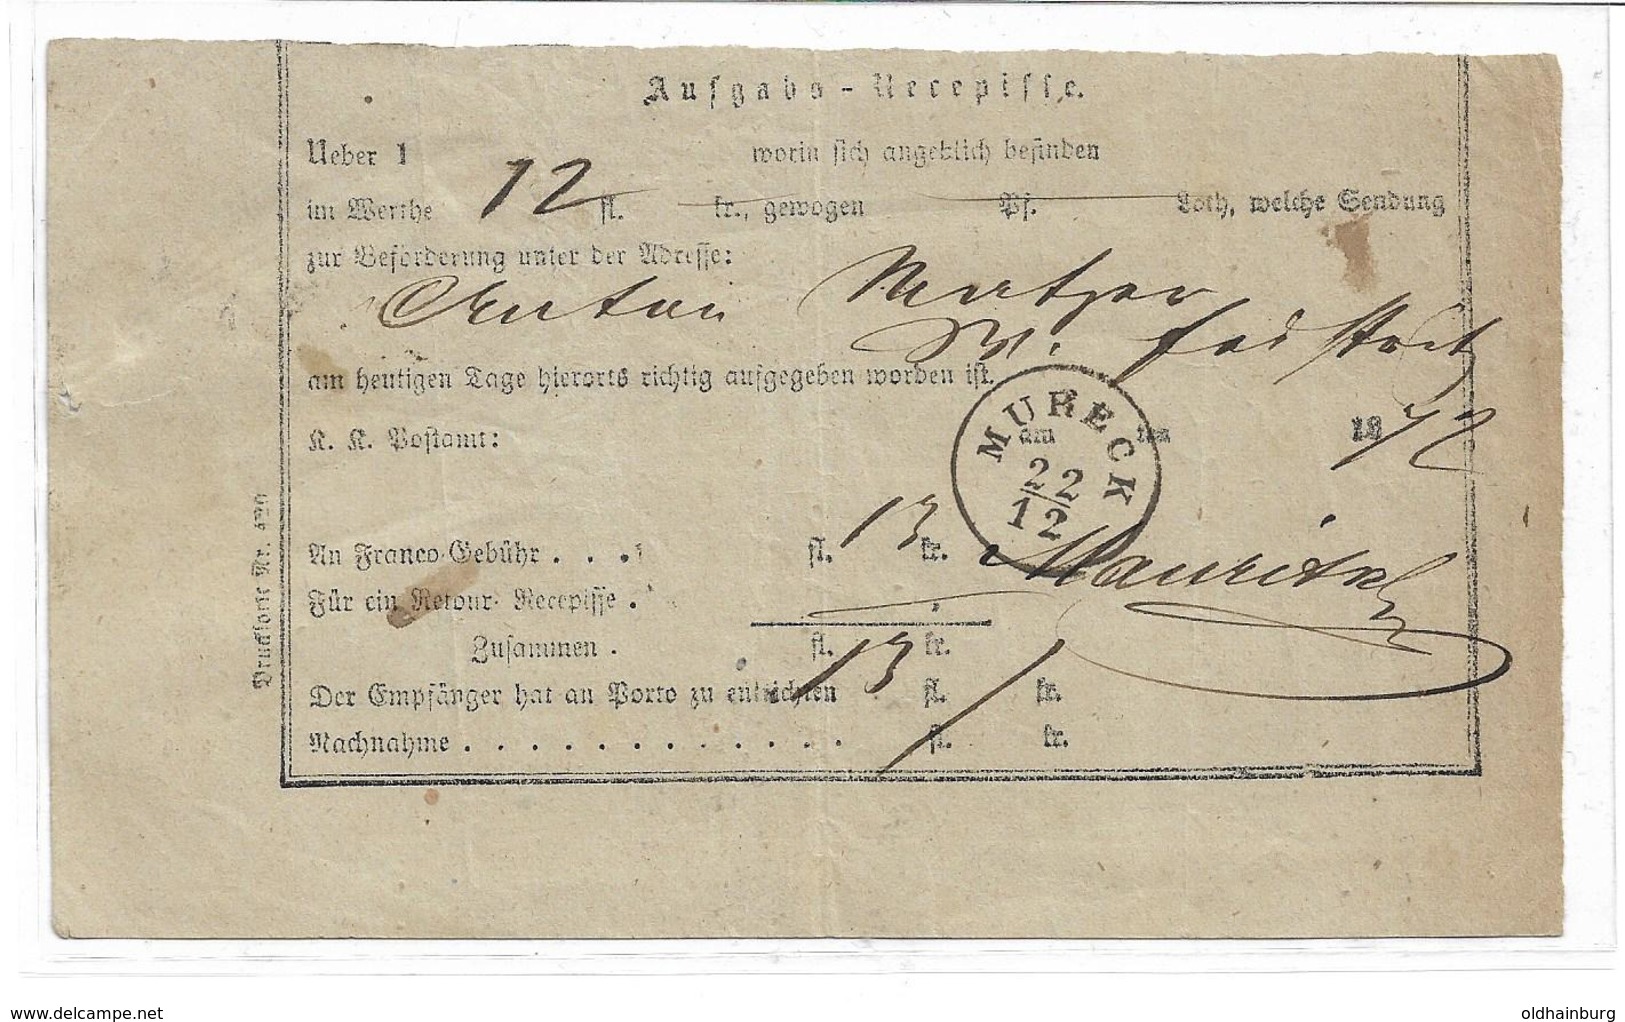 Aufgabs-Recepisse.
Ueber 1 worin sich angeblich befinden
im Werthe 12 fl. kr., gewogen Pf. Loth, welche Sendung
zur Beförderung unter der Adresse:
Anton
am heutigen Tage hierorts richtig aufgegeben worden ist.
MURECK
K. K. Postamt: am ten 1872
22
12
An Franco-Gebühr . . . fl. 13 kr.
Für ein Retour-Recepisse .
Zusammen . fl. 13 kr.
Der Empfänger hat an Porto zu entrichten fl. kr.
Nachnahme . . . . . . . . . . . . fl. kr.
Drucksorte Nr.
www.delcampe.net
oldhainburg